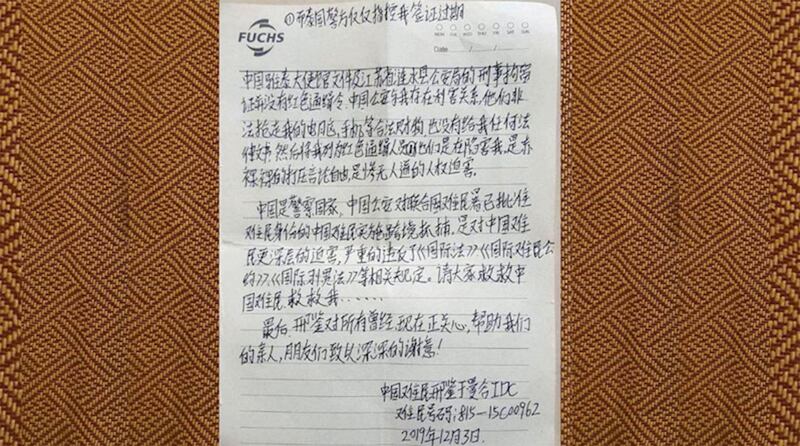 ①而泰国警方仅仅指控我签证过期
FUCHS
MON TUE WED THU FRI SAT SUN
Date / /
中国驻泰大使馆文件及江苏省涟水县公安局的刑事拘留
证和没有红色通缉令.中国公安与我存在利害关系,他们非
法抢走我的电脑,手机等合法财物也没有给我任何法
律文书.然后将我列为红色通缉人员他们是在陷害我,是赤
裸裸的打压言论自由,是惨无人道的人权迫害。
中国是警察国家,中国公安对联合国难民署已批准
难民身份的中国难民实施跨境抓捕,是对中国难
民更深层的迫害,严重的违反了《国际法》《国际难民公
约》《国际刑罪法》等相关规定。请大家救救中
国难民救救我......
最后,邢鉴对所有曾经,现在正关心,帮助我们
的亲人,朋友们致以深深的谢意!
中国难民邢鉴于曼谷IDC
难民号码:815-15C00962
2019年12月3日.